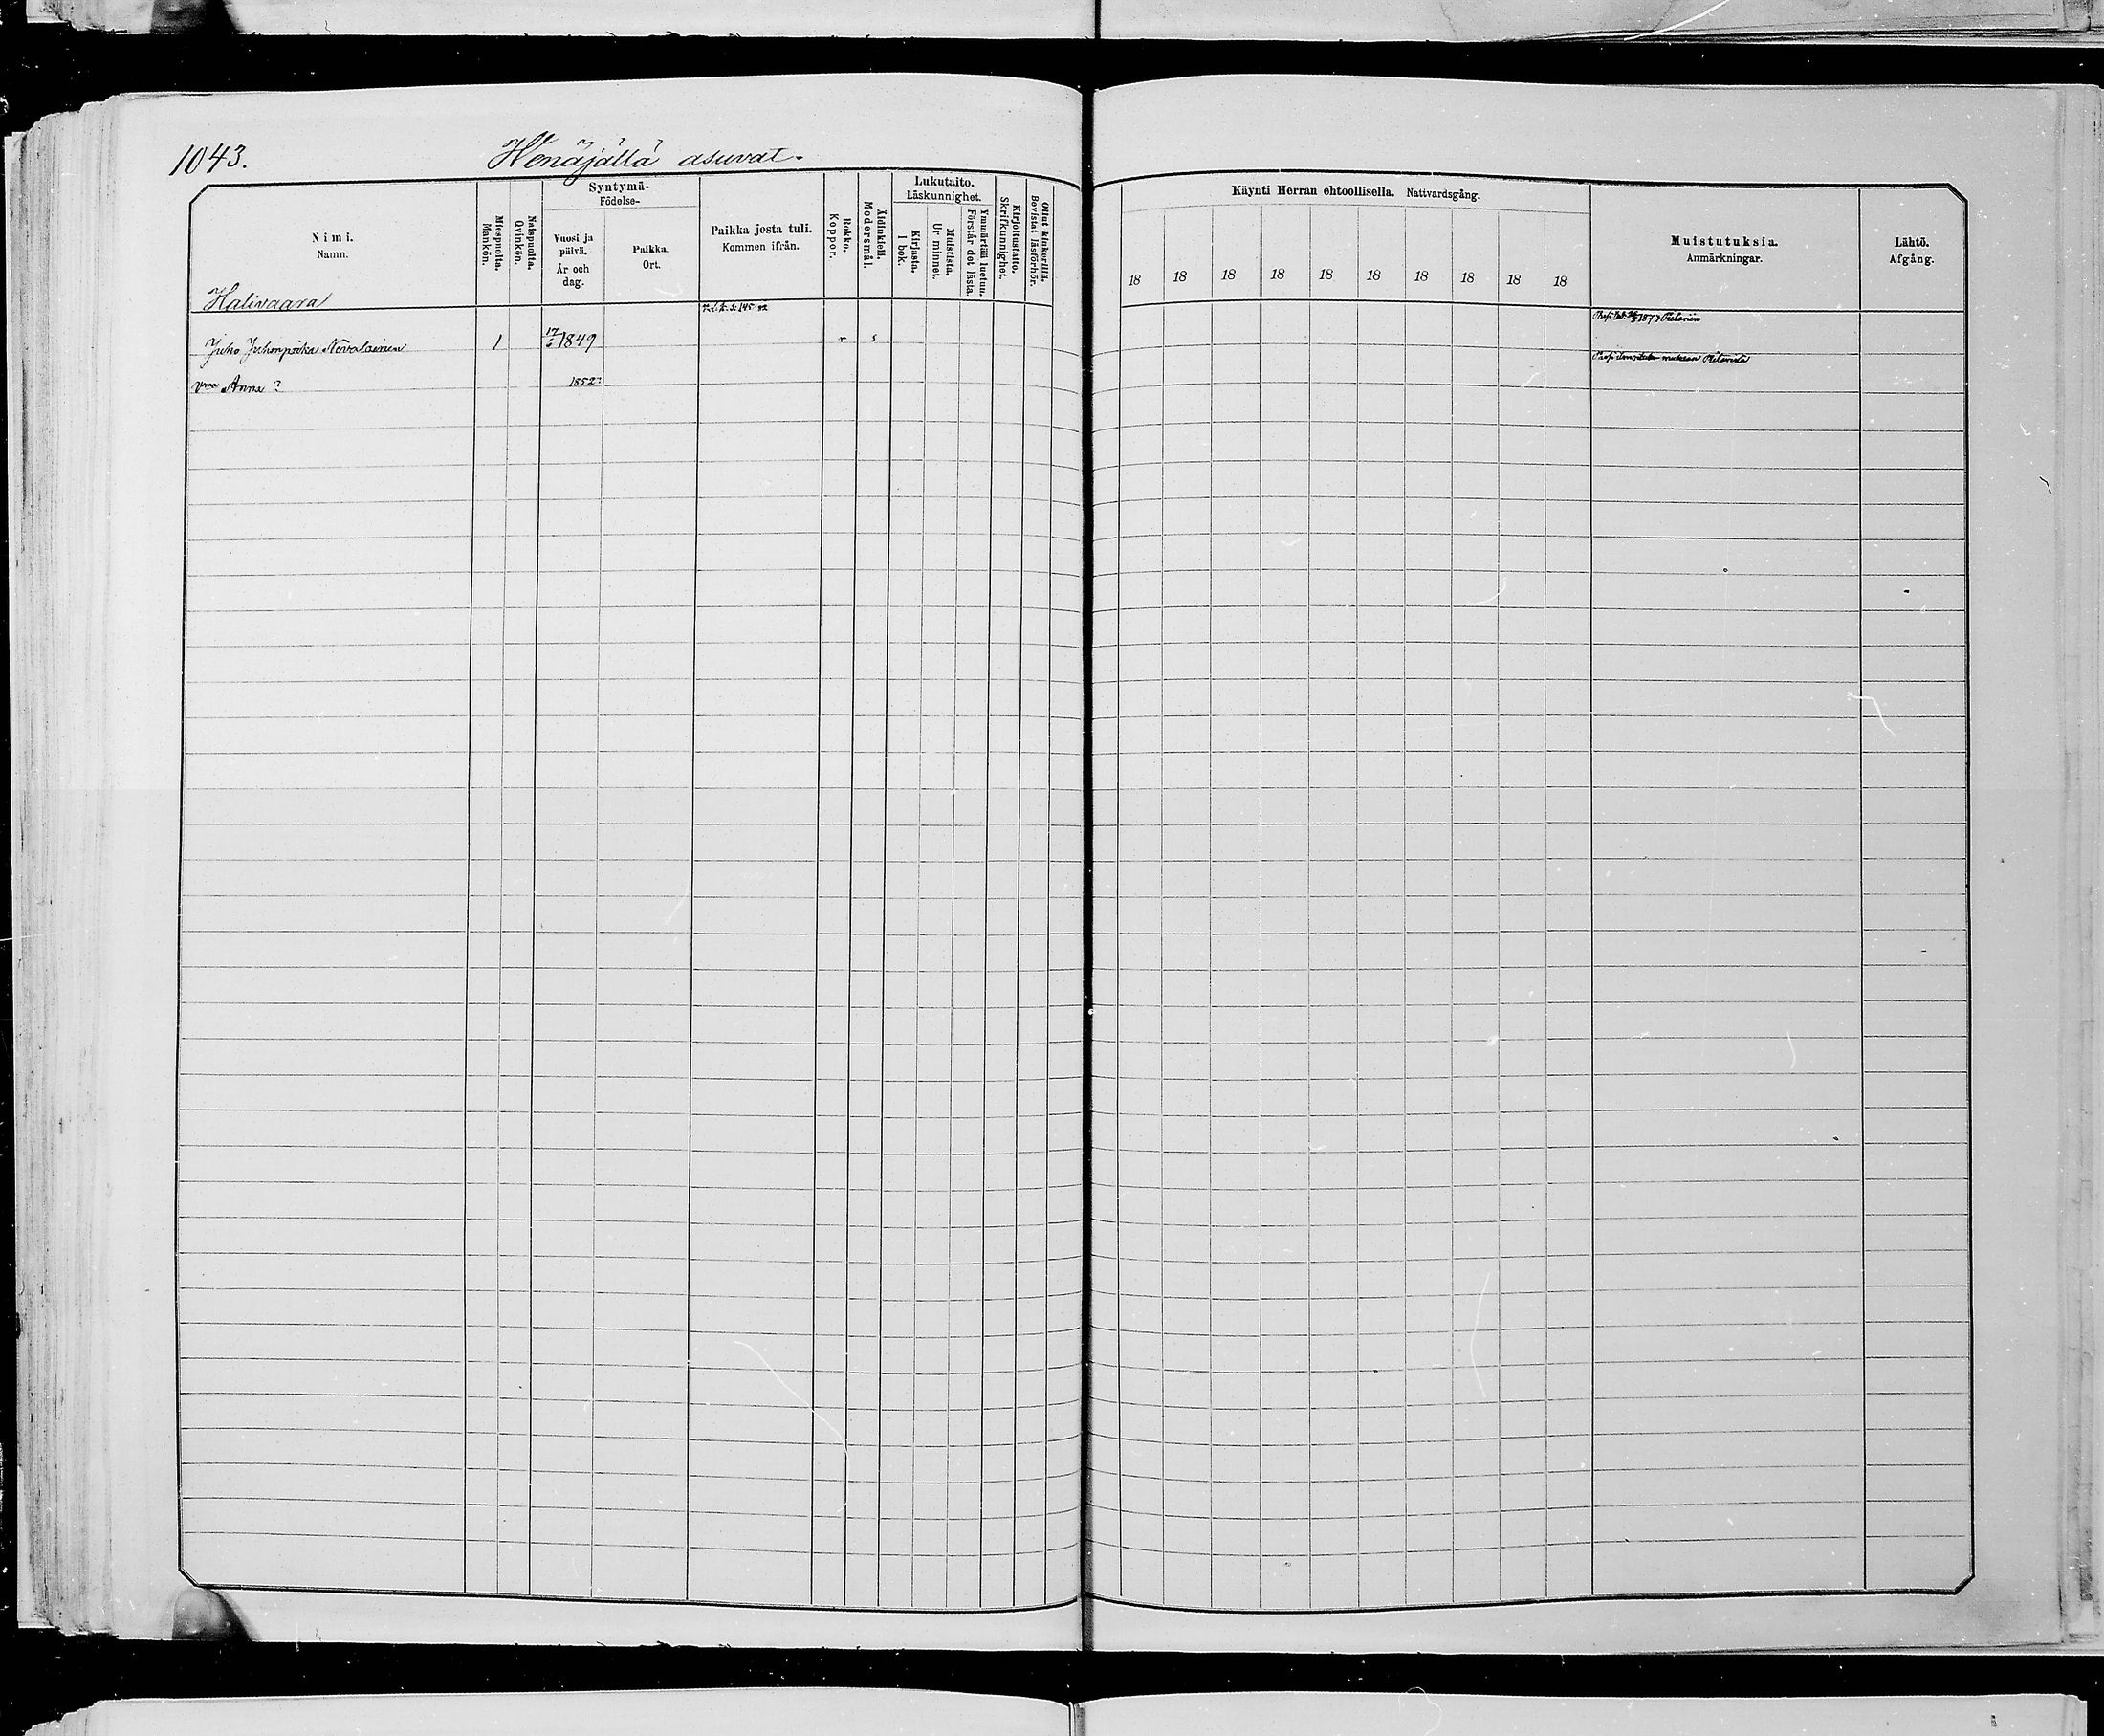 1043.
Wenäjällä asuvat.
Nimi.
Namn.
Miespuolta.
Mankön.
Naispuolta.
Qvinkön.
Syntymä-
Födelse-
Vuosi ja
päivä.
År och
dag.
Paikka.
Ort.
Paikka josta tuli.
Kommen ifrån.
Rokko.
Koppor.
Äidinkieli.
Modersmål.
Lukutaito.
Läskunnighet.
Kirjasta.
I bok.
Muistista.
Ur minnet.
Ymmärtää luetun.
Förstår det lästa.
Kirjoitustaito.
Skrifkunnighet.
Ollut kinkerillä.
Bevistat läsförhör.
Käynti Herran ehtoollisella. Nattvardsgång.
18 18 18 18 18 18 18 18 18 18
Muistutuksia.
Anmärkningar.
Lähtö.
Afgång.
Halivaara
Juho Juhonpoika Nevalainen 1 17/6 1849 r s
Anna ? 1852?